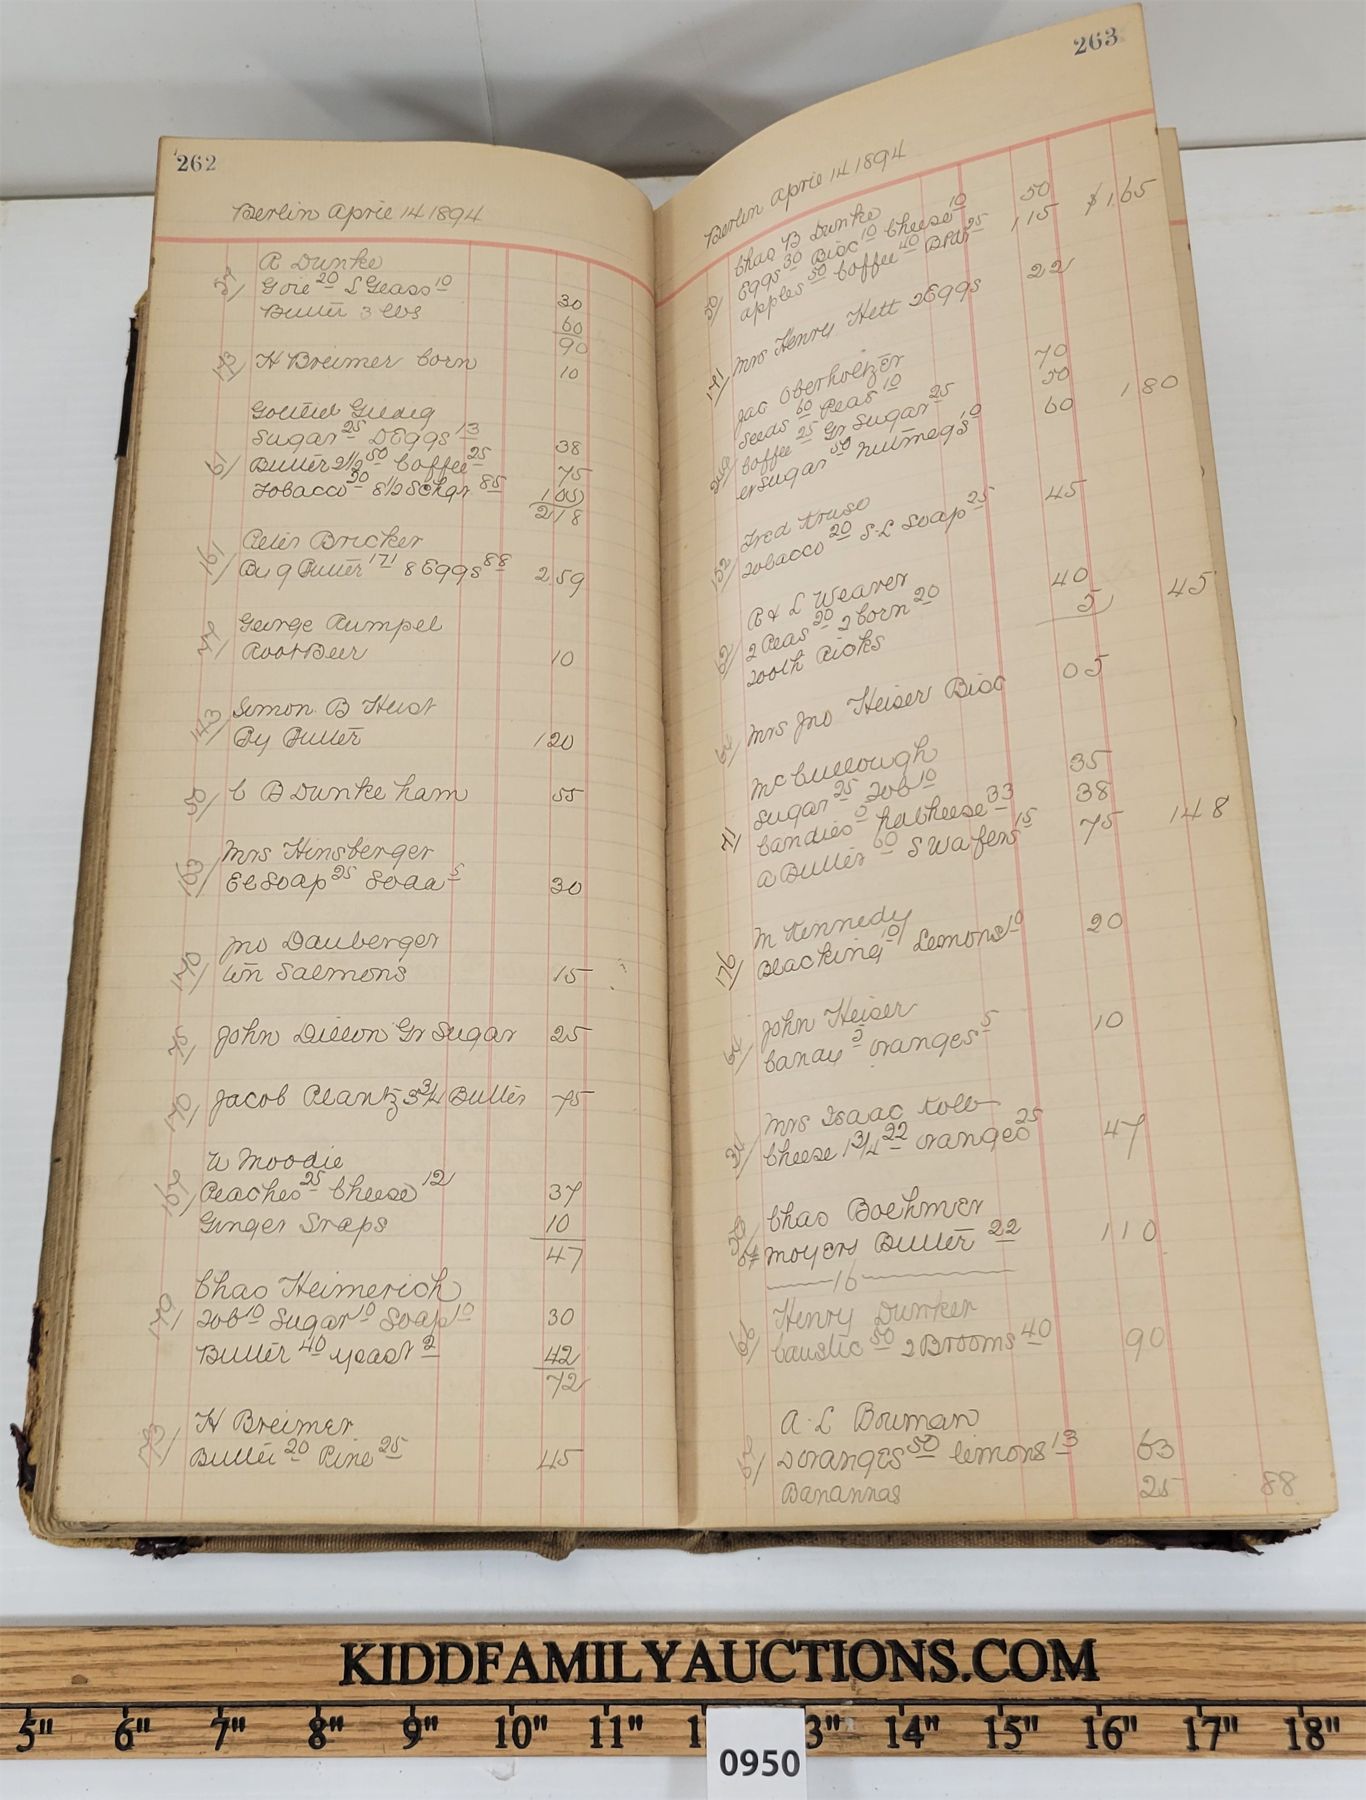 262
Berlin April 14 1894
A Dunke
20 L Glass 10 30
Butter 3 lbs 60
90
173/ H Breimer Corn 10
Sugar 25 D Eggs 13 38
61/ Butter 2 1/2 50 Coffee 25 75
Tobacco 20 8 1/2 85 1 05
2 18
161/ Peter Bricker
By 9 Butter 1 71 8 Eggs 88 2.59
George Rumpel
Root Beer 10
143/ Simon B Heist
By Butter 1 20
50/ C B Dunke ham 55
163/ Mrs Hinsberger
El Soap 25 Soda 5 30
170/ Jno Dauberger
tin Salmons 15
75/ John Dillon Gr Sugar 25
170/ Jacob Plantz 3 3/4 Butter 75
167/ W Moodie
Peaches 25 Cheese 12 37
Ginger Snaps 10
47
179/ Chas Heimerich
Tob 10 Sugar 10 Soap 10 30
Butter 40 yeast 2 42
72
173/ H Breimer
Butter 20 Pine 25 45
263
Berlin April 14 1894
50/ Chas B Dunke
Eggs 30 Bisc 10 Cheese 10 50
apples 50 Coffee 40 25 1 15 $1.65
171/ Mrs Henry Hett 2 Eggs 22
Jac Oberholtzer
Seeds 60 Peas 10 70
Coffee 25 Gr Sugar 25 50
Sugar 50 Nutmegs 10 60 1 80
152/ Fred Kruse
Tobacco 20 S.L Soap 25 45
62/ A & L Weaver
2 Peas 20 2 Corn 20 40
Tooth Picks 5 45
64/ Mrs Jno Heiser Bisc 05
McCullough
Sugar 25 Tob 10 35
71/ Candies 5 Cheese 33 38
a Butter 60 S Wafers 15 75 1 48
176/ M Kennedy
Blacking 10 Lemons 10 20
64/ John Heiser
Candy 5 oranges 5 10
Mrs Isaac Kolb
31/ Cheese 1 3/4 22 oranges 25 47
Chas Boehmer
Moyers Butter 22 1 10
16
66/ Henry Dunker
Caustic 50 2 Brooms 40 90
A. L Bowman
D oranges 50 lemons 13 63
Banannas 25 88
KIDDFAMILYAUCTIONS.COM
5" 6" 7" 8" 9" 10" 11" 1 3" 14" 15" 16" 17" 18"
0950